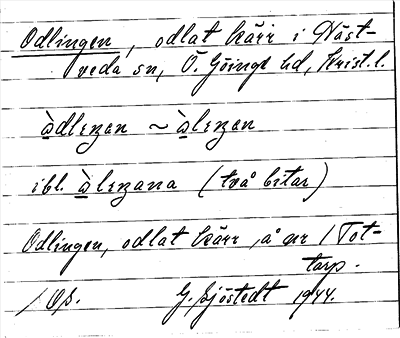 Odlingen, odlat kärr i Näst-
veda sn, Ö. Göinge hd, Krist. l.
ꭤ̀dleŋen ~ ꭤ̀leŋen
ibl. ꭤ̀leŋana (två bitar)
Odlingen, odlat kärr, å nr 1 Tot-
tarp.
G. Sjöstedt 1944.